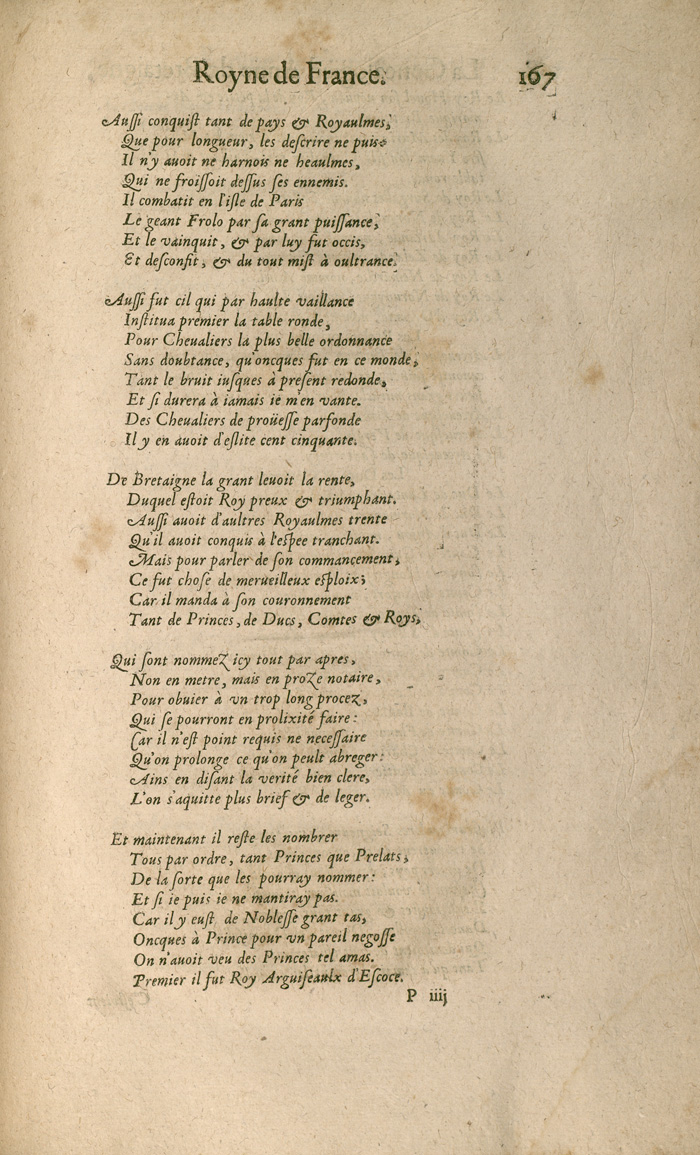 Royne de France. 167
Auſſi conquiſt tant de pays & Royaulmes,
Que pour longueur, les deſcrire ne puis
Il n'y auoit ne harnois ne heaulmes,
Qui ne froiſſoit deſſus ſes ennemis.
Il combatit en l'iſle de Paris
Le geant Frolo par ſa grant puiſſance,
Et le vainquit, & par luy fut occis,
Et desconfit, & du tout miſt à oultrance.
Auſſi fut cil qui par haulte vaillance
Inſtitua premier la table ronde,
Pour Cheualiers la plus belle ordonnance
Sans doubtance, qu'oncques fut en ce monde,
Tant le bruit iuſques à preſent redonde,
Et ſi durera à iamais ie m'en vante.
Des Cheualiers de proüeſſe parfonde
Il y en auoit d'eſlite cent cinquante.
De Bretaigne la grant leuoit la rente,
Duquel eſtoit Roy preux & triumphant.
Auſſi auoit d'aultres Royaulmes trente
Qu'il auoit conquis à l'eſpee tranchant.
Mais pour parler de ſon commancement,
Ce fut choſe de merueilleux eſploix;
Car il manda à ſon couronnement
Tant de Princes, de Ducs, Comtes & Roys,
Qui ſont nommez icy tout par apres,
Non en metre, mais en proze notaire,
Pour obuier à vn trop long procez,
Qui ſe pourront en prolixité faire:
Car il n'eſt point requis ne neceſſaire
Qu'on prolonge ce qu'on peult abreger:
Ains en diſant la verité bien clere,
L'on s'aquitte plus brief & de leger.
Et maintenant il reſte les nombrer
Tous par ordre, tant Princes que Prelats,
De la ſorte que les pourray nommer:
Et ſi ie puis ie ne mantiray pas.
Car il y euſt de Nobleſſe grant tas,
Oncques à Prince pour vn pareil negoſſe
On n'auoit veu des Princes tel amas.
Premier il fut Roy Arguiſeaulx d'Eſcoce.
P iiij